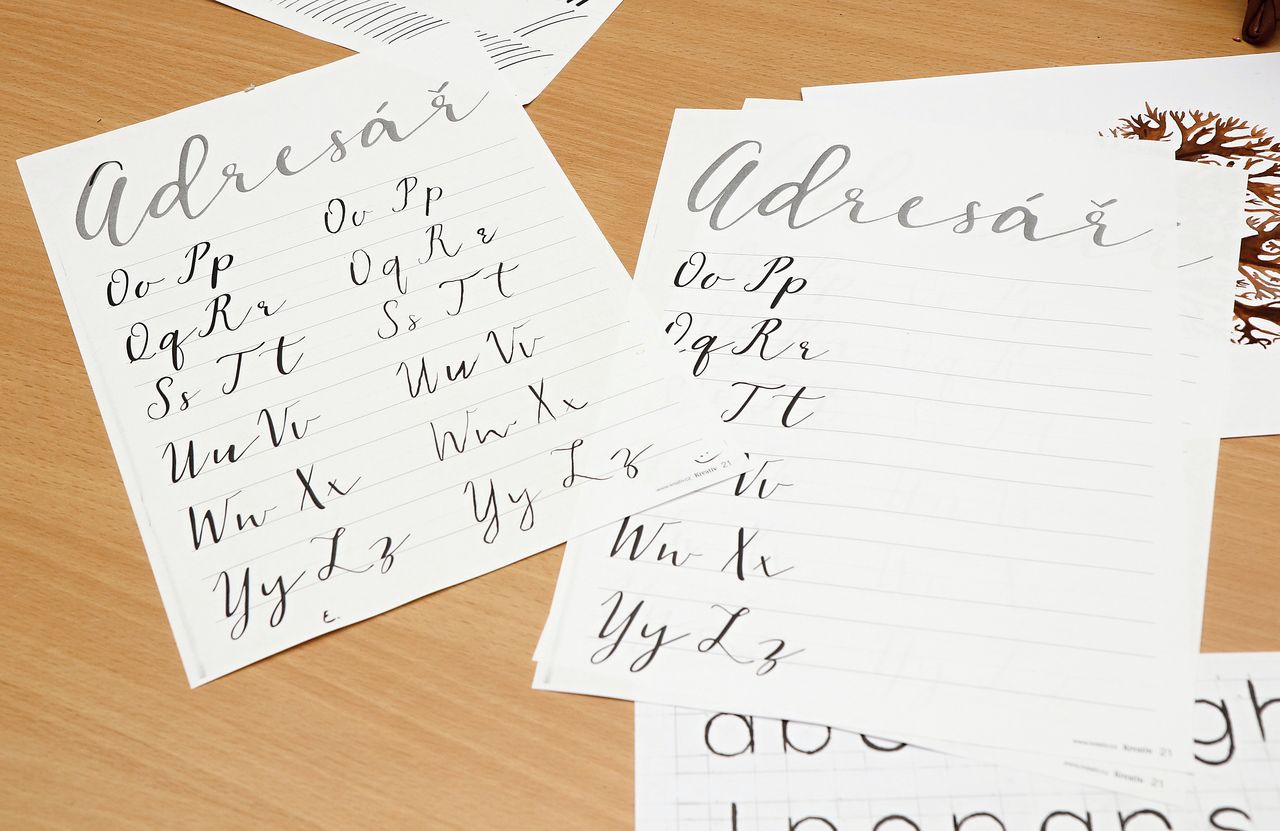 Adresář
Oo Pp Oo Pp
Qq Rr Qq Rr
Ss Tt Ss Tt
Uu Vv Uu Vv
Ww Xx Ww Xx
Yy Zz Yy Zz
Kreativ 21
Adresář
Oo Pp
Qq Rr
Tt
Vv
Ww Xx
Yy Zz
Kreativ 21
Kreativ 21
ab gh